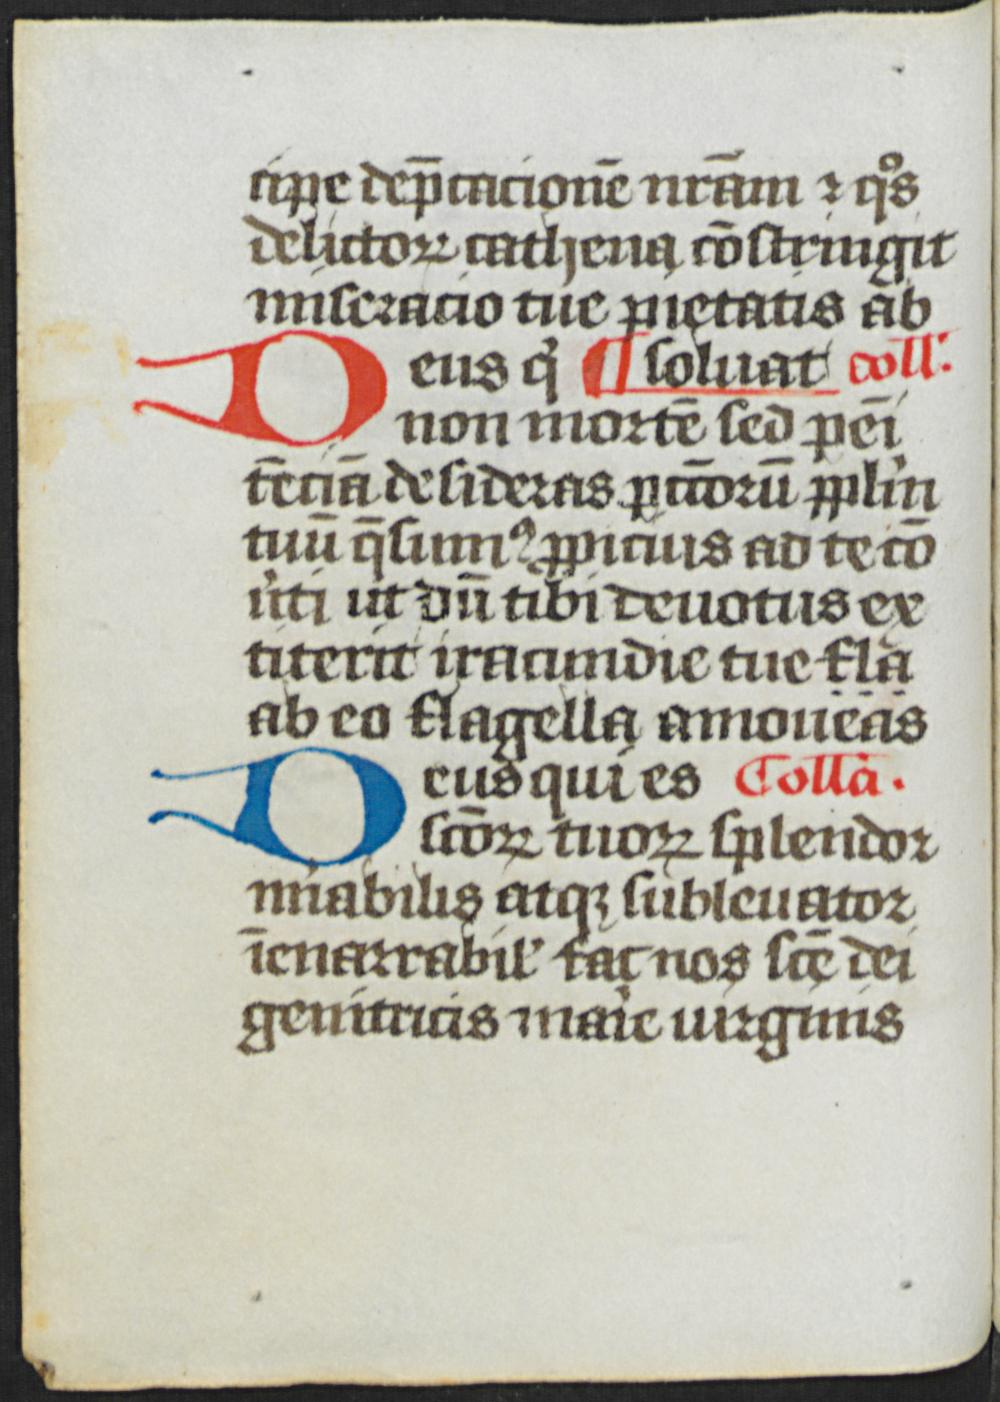 cipe dep̄cacionē nr̄am ⁊ qͦs
delictoꝝ cathena cōstringit
miseracio tue pietatis ab
Deus q̇ ¶ soluat coll':
non mortē sed pēi
tēciā desideras pct̄orū pplm̄
tuū q̄sumꝰ ꝓpicius ad te cō
u̇ti ut dū tibi deuotus ex
titerit iracundie tue fla
ab eo flagella amoueas
Deus qui es Colla.
sc̄oꝝ tuoꝝ splendor
mi̇abilis atqꝫ subleuator
īenarrabil' fac nos scē dei
genitricis mai̇e uirginis